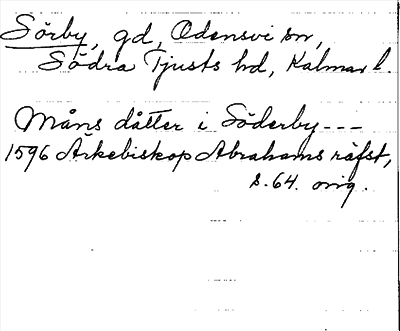 Sörby, gd, Odensvi sn,
Södra Tjusts hd, Kalmar l.
Måns dåtter i Söderby---
1596 Arkebiskop Abrahams räfst,
s. 64. orig.